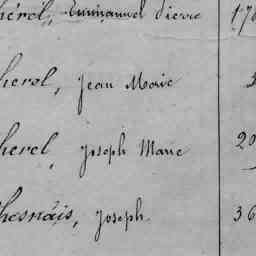 hérel, Emmanuel Pierre 17
herel, Jean Marie
herel, Joseph Marie 20
hesnais, Joseph 36